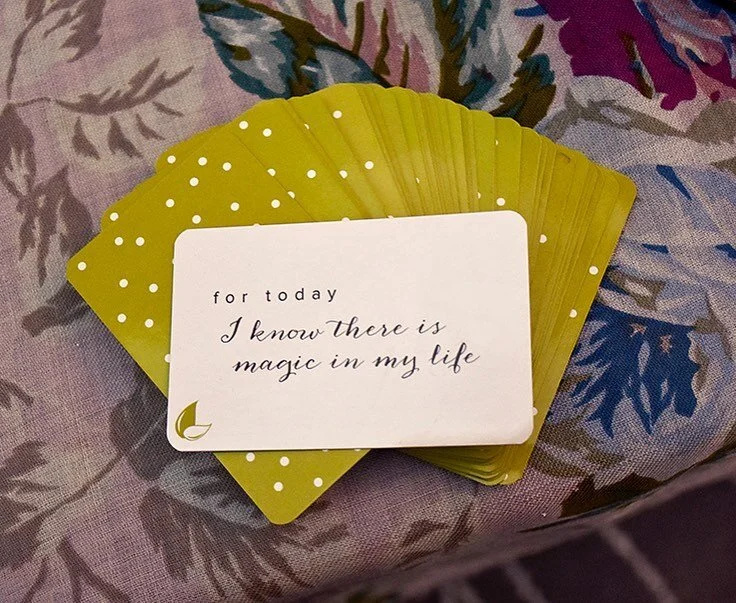 for today
I know there is
magic in my life